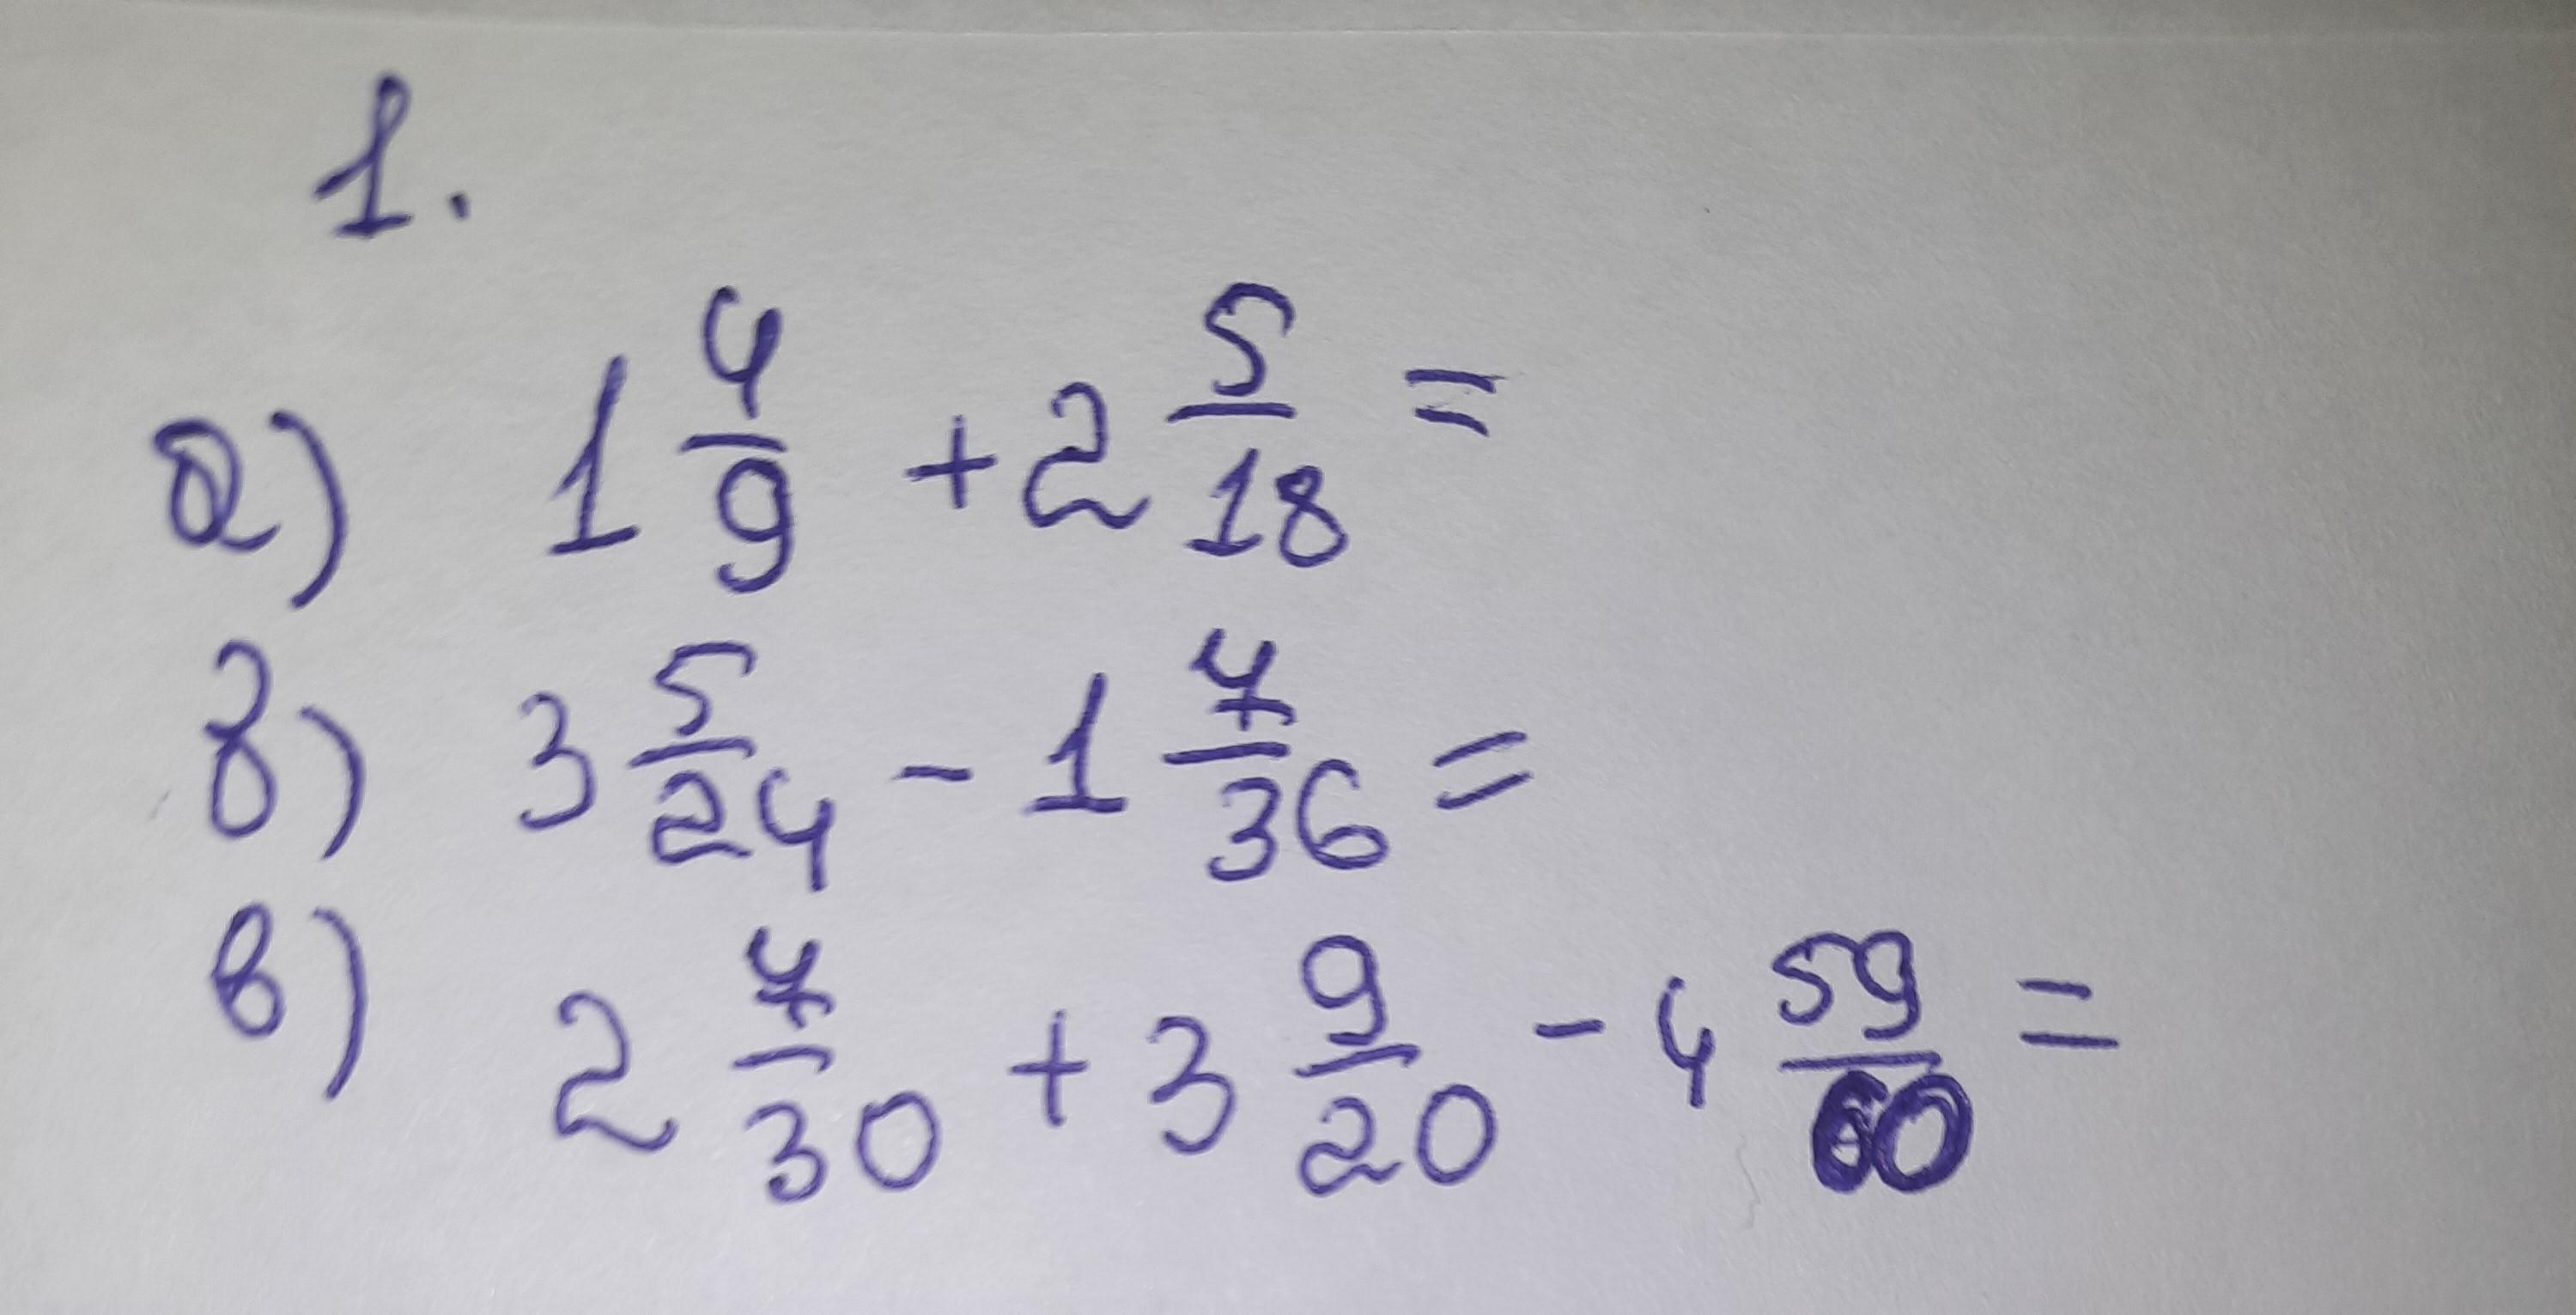 1.
а) 1 4/9 + 2 5/18 =
б) 3 5/24 - 1 7/36 =
в) 2 7/30 + 3 9/20 - 4 59/60 =